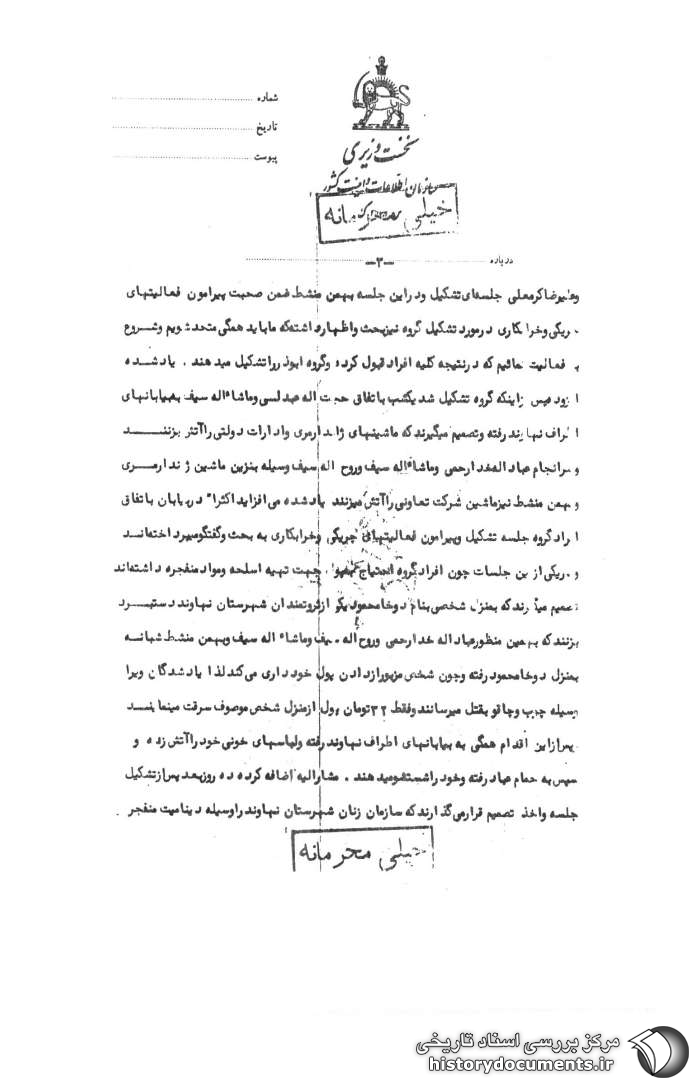 شماره
تاریخ
پیوست
نخست وزیری
سازمان اطلاعات و امنیت کشور
خیلی محرمانه
درباره
-۳-
وعلیرضاکرمعلی جلسه‌ای تشکیل ودراین جلسه بهمن منشط ضمن صحبت پیرامون فعالیتهای
وخرابکاری درمورد تشکیل گروه نیزبحث واظهارداشته که مابایدهمگی متحدشویم وشروع
فعالیت نمائیم که درنتیجه کلیه افرادقبول کرده وگروه ابوذرراتشکیل میدهند . یادشده
اینکه گروه تشکیل شدیکشب باتفاق حجت اله عبدلسی وماشااله سیف به بیابانهای
نهاوند رفته وتصمیم میگیرندکه ماشینهای ژاندارمری وادارات دولتی راآتش بزننـــد
وسرانجام عباداله خدارحمی وماشااله سیف وروح اله سیف وسیله بنزین ماشین ژندارمــری
وبهمن منشط نیزماشین شرکت تعاونی راآتش میزنند یادشده می افزاید اکثرا" دربیابان باتفاق
گروه جلسه تشکیل وپیرامون فعالیتهای چریکی وخرابکاری به بحث وگفتگومیپرداخته‌انـد
ودریکی از جلسات چون افرادگروه احتیاج جهت تهیه اسلحه وموادمنفجره داشته‌اند
تصمیم میگیرندکه بمنزل شخصی بنام دوخامحمودیکی ازثروتمندان شهرستان نهاوند دستبــرد
بزنندکه بهمین منظورعباداله خدارحمی وروح اله سیف وماشااله سیف وبهمن منشط شبانـه
بمنزل دوخامحمود رفته وچون شخص مزبورازدادن پول خودداری می کندلذا یادشدگان ویرا
وسیله چوب وچاقو بقتل میرسانندوفقط ۳۲تومان پول ازمنزل شخص موصوف سرقت مینماینـد
پس ازاین اقدام همگی به بیابانهای اطراف نهاوند رفته ولباسهای خونی خودراآتش زده و
سپس به حمام عبادرفته وخودراشستشومیدهند . مشارالیه اضافه کرده ده روزبعدپس ازتشکیل
جلسه واخذ تصمیم قرارمی گذارندکه سازمان زنان شهرستان نهاوند راوسیله دینامیت منفجر
خیلی محرمانه
مرکز بررسی اسناد تاریخی
historydocuments.ir